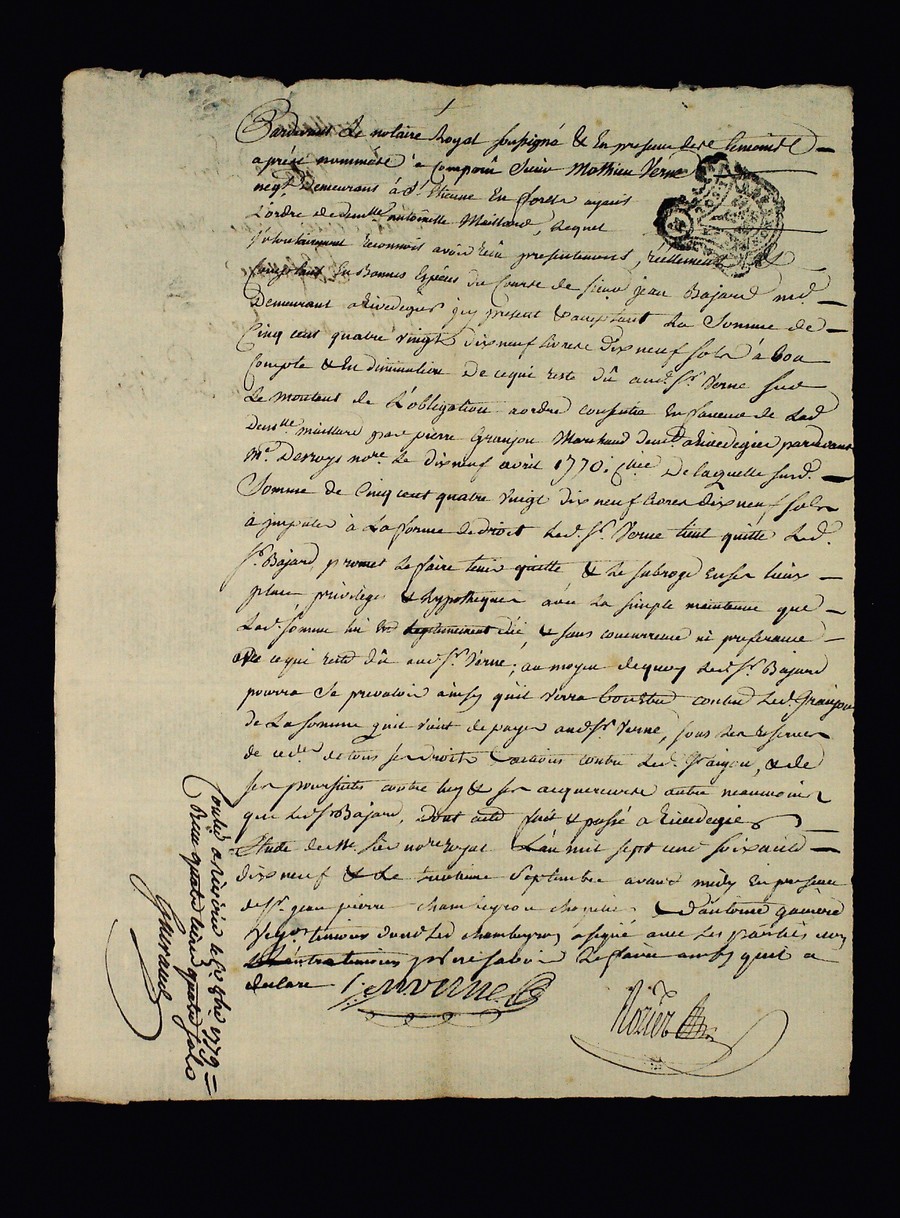 Pardevant le notaire Royal soussigné & En presence des temoins
apres nommés a Comparu Sieur Mathieu Verne
negt Demeurant à St Etienne En forest ayant
L'ordre de demlle antoinette Maillard, Lequel
Volontairement reconnoit avoir reçu presentement, reellement
Comptant En Bonnes Espèces du Cours de sieur jean Bajard md
Demeurant a Rivedegier icy present & acceptant La Somme de
Cinq cent quatre vingt dix neuf livres dix neuf sols à bon
Compte & En diminution De ce qui reste dû aud. Sr Verne sur
Le montant de L'obligation a ordre consentie En faveur de Lad.
demlle maillard par pierre Granjon Marchand demt a Rivedegier pardevant
Me Desroys nore Le dix neuf avril 1770; De laquelle susd.
Somme de Cinq cent quatre vingt dix neuf livres dix neuf sols
à imputer à La forme de droit Led. Sr Verne tient quitte Led.
Sr Bajard, promet Le faire tenir quitte & Le subroge En ses lieux
place privileges & hypotheques avec La simple maintenue que
Lad. somme lui est legitimement düe, & sans concurrence ni preference
ce qui reste dû aud. Sr Verne; au moyen de quoy Led. Sr Bajard
pourra Se prevaloir ainsy qu'il verra contre Led. Granjon
de La somme qu'il vient de payer aud. Sr Verne, sous Les reserves
de ced. de tous ses droits & actions contre Led. Granjon, & de
ses poursuites contre luy & ses acquereurs autre neanmoins
que Led. Sr Bajard, Dont acte fait & passé a Rivedegier
Etude de Me nore royal L'an mil sept cent soixante
dix neuf & Le Septembre avant midy En presence
de Sr jean pierre chambeyron & d'antoine
temoins dont Led. chambeyron a signé avec Les parties non
pour ne savoir Le faire ainsy qu'il a
declaré
Verne
Rozier
Controlé a le 1779
Reçu quatre livres quatre sols